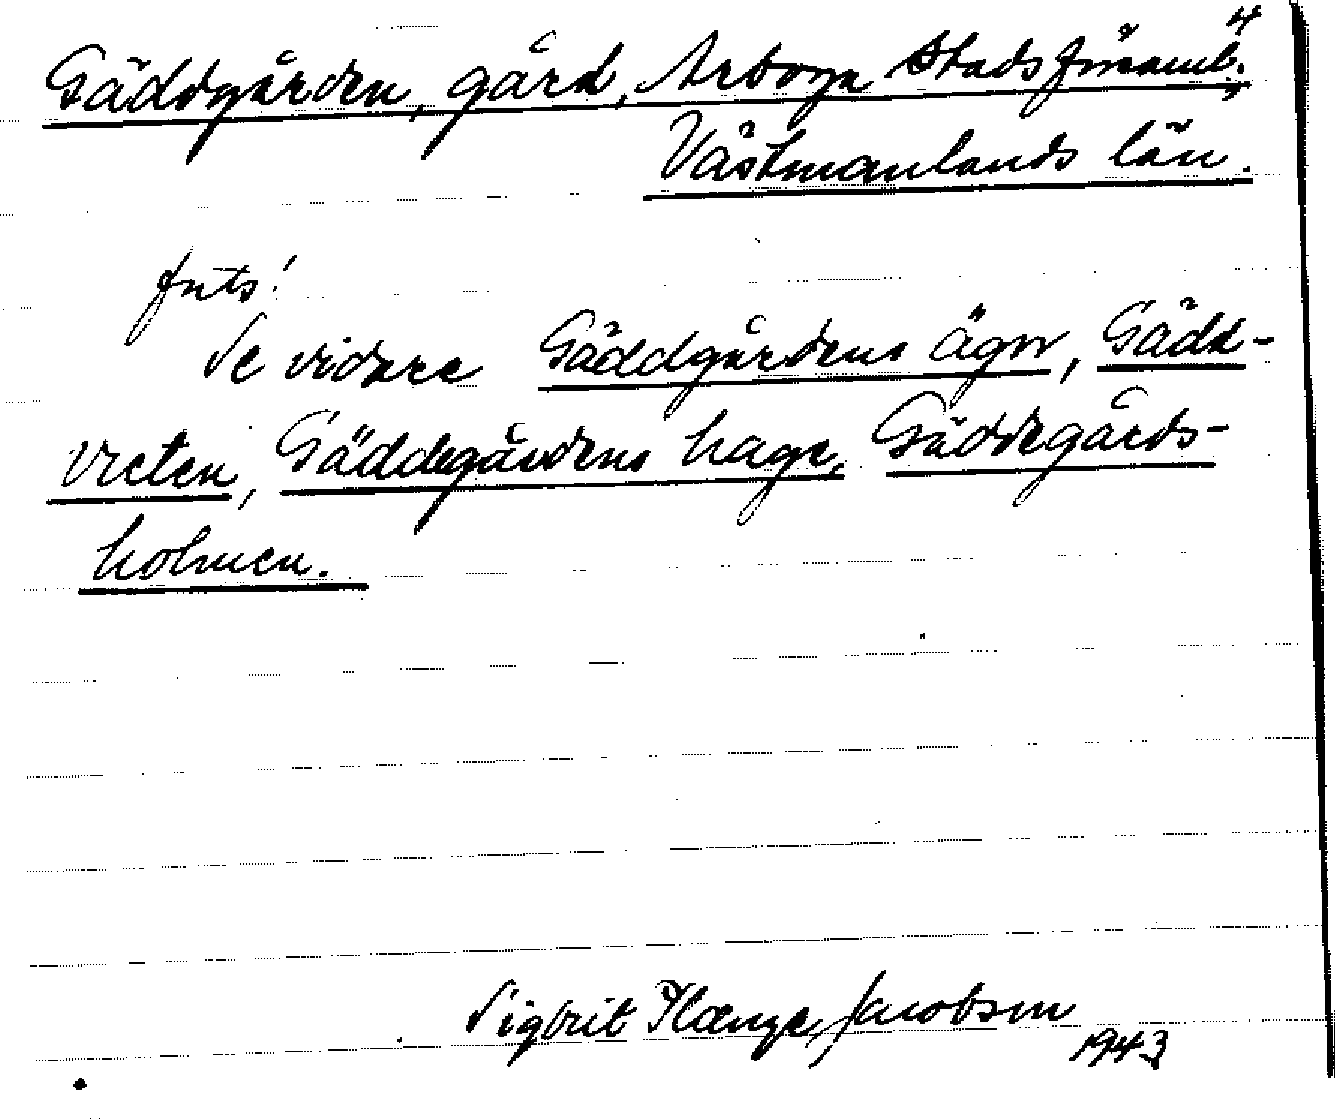 4
Gäddgården, gård, Arboga stadsförsaml.,
Västmanlands län.
forts!
Se vidare Gäddgårdens ägor, Gädd-
vreten, Gäddegårdens hage, Gäddegårds-
holmen.
Sigbrit Plænge Jacobson
1943